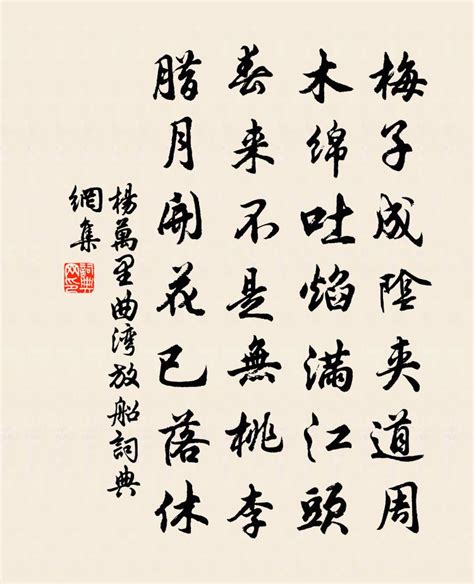 梅子成陰夹道周
木绵吐焰滿江頭
春来不是無桃李
腊月開花已落休
楊萬里曲湾放船詞典
網集
詞典
网印